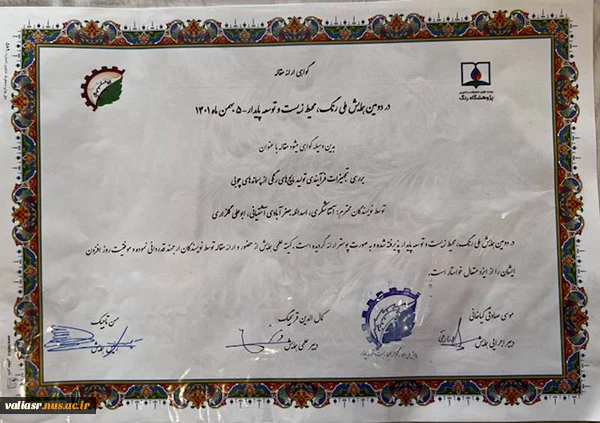 پژوهشگاه رنگ
گواهی ارائه مقاله
در دومین همایش ملی رنگ، محیط زیست و توسعه پایدار - ۵ بهمن ماه ۱۴۰۱
بدین وسیله گواهی میشود مقاله با عنوان
بررسی تجهیزات فرآیندی تولید مالچ‌های رنگی از پسماندهای چوبی
توسط نویسندگان محترم: آستا شکری، اسدالله جعفرآبادی آشتیانی، ابوعلی گلزاری
در دومین همایش ملی رنگ، محیط زیست و توسعه پایدار پذیرفته شده و به صورت پوستر ارائه گردیده است. کمیته علمی همایش از حضور و ارائه مقاله توسط نویسندگان ارجمند قدردانی نموده و موفقیت روز افزون
ایشان را از ایزد متعال خواستار است.
موسی صادقی کیاخانی
دبیر اجرایی همایش
کمال الدین قرنجیگ
دبیر علمی همایش
حسن تاجیک
همایش
valiasr.nus.ac.ir